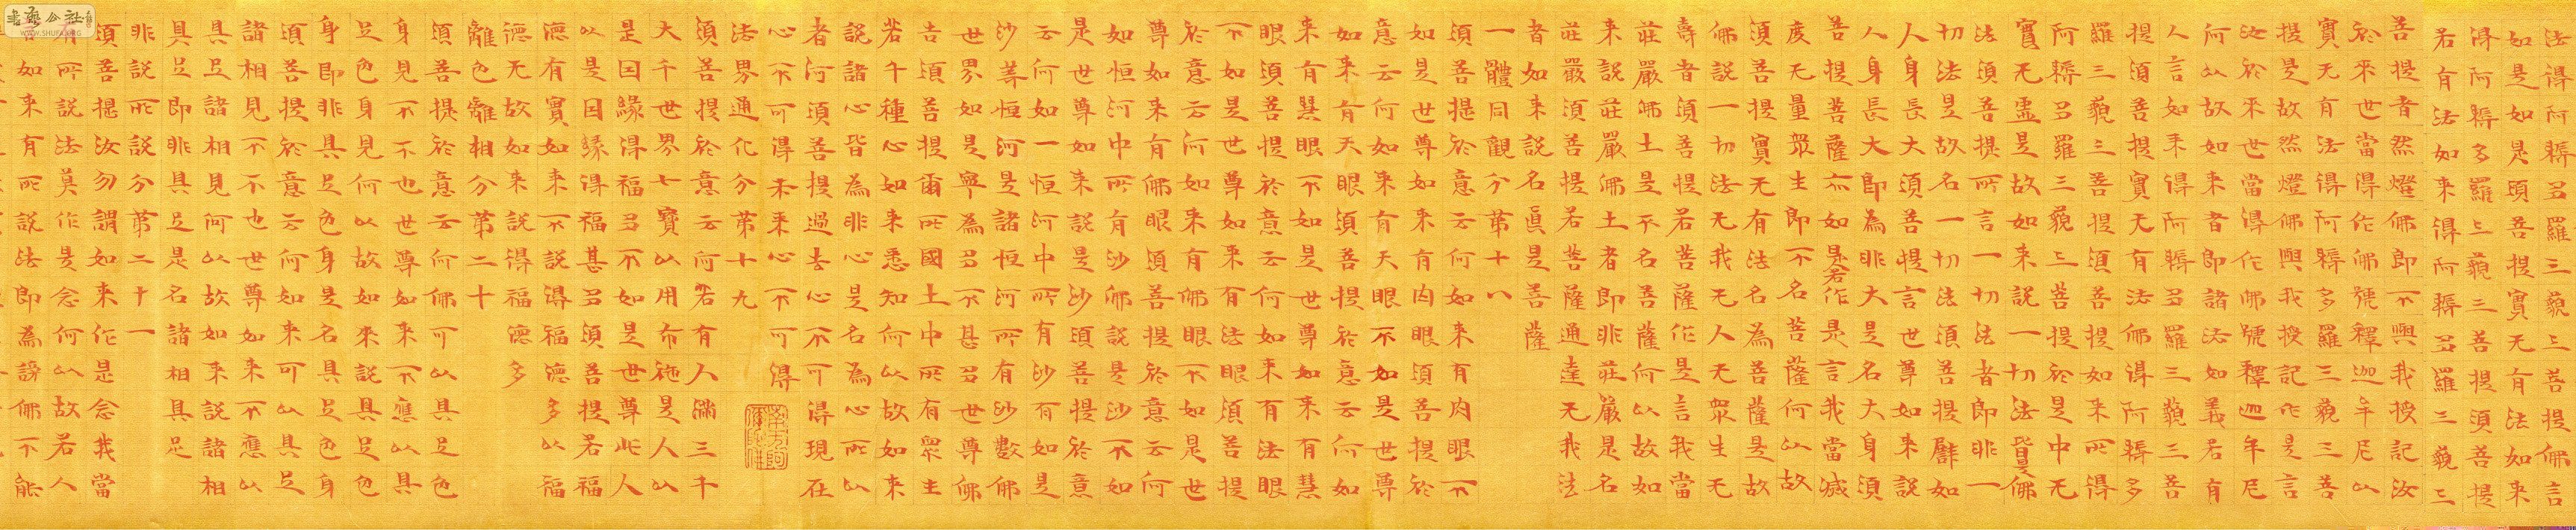 法得阿耨多羅三藐三菩提佛言
如是如是須菩提實无有法如来
得阿耨多羅三藐三菩提須菩提
若有法如来得阿耨多羅三藐三
菩提者然燈佛即不與我授記汝
於来世當得作佛號釋迦牟尼以
實无有法得阿耨多羅三藐三菩
提是故然燈佛與我授記作是言
汝於来世當得作佛號釋迦牟尼
何以故如来者即諸法如義若有
人言如来得阿耨多羅三藐三菩
提須菩提實无有法佛得阿耨多
羅三藐三菩提須菩提如来所得
阿耨多羅三藐三菩提於是中无
實无虛是故如来說一切法皆是佛
法須菩提所言一切法者即非一
切法是故名一切法須菩提譬如
人身長大須菩提言世尊如来說
人身長大即為非大是名大身須
菩提菩薩亦如是若作是言我當滅
度无量眾生即不名菩薩何以故
須菩提實无有法名為菩薩是故
佛說一切法无我无人无眾生无
壽者須菩提若菩薩作是言我當
莊嚴佛土是不名菩薩何以故如
来說莊嚴佛土者即非莊嚴是名
莊嚴須菩提若菩薩通達无我法
者如来說名真是菩薩
一體同觀分第十八
須菩提於意云何如来有肉眼不
如是世尊如来有肉眼須菩提於
意云何如来有天眼不如是世尊
如来有天眼須菩提於意云何如
来有慧眼不如是世尊如来有慧
眼須菩提於意云何如来有法眼
不如是世尊如来有法眼須菩提
於意云何如来有佛眼不如是世
尊如来有佛眼須菩提於意云何
如恒河中所有沙佛說是沙不如
是世尊如来說是沙須菩提於意
云何如一恒河中所有沙有如是
沙等恒河是諸恒河所有沙數佛
世界如是寧為多不甚多世尊佛
告須菩提爾所國土中所有眾生
若干種心如来悉知何以故如来
說諸心皆為非心是名為心所以
者何須菩提過去心不可得現在
心不可得未来心不可得
法界通化分第十九
須菩提於意云何若有人滿三千
大千世界七寶以用布施是人以
是因緣得福多不如是世尊此人
以是因緣得福甚多須菩提若福
德有實如来不說得福德多以福
德无故如来說得福德多
離色離相分第二十
須菩提於意云何佛可以具足色
身見不不也世尊如来不應以具
足色身見何以故如来說具足色
身即非具足色身是名具足色身
須菩提於意云何如来可以具足
諸相見不不也世尊如来不應以
具足諸相見何以故如来說諸相
具足即非具足是名諸相具足
非說所說分第二十一
須菩提汝勿謂如来作是念我當
有所說法莫作是念何以故若人
言如来有所說法即為謗佛不能
書藝公社
WWW.SHUFA.ORG